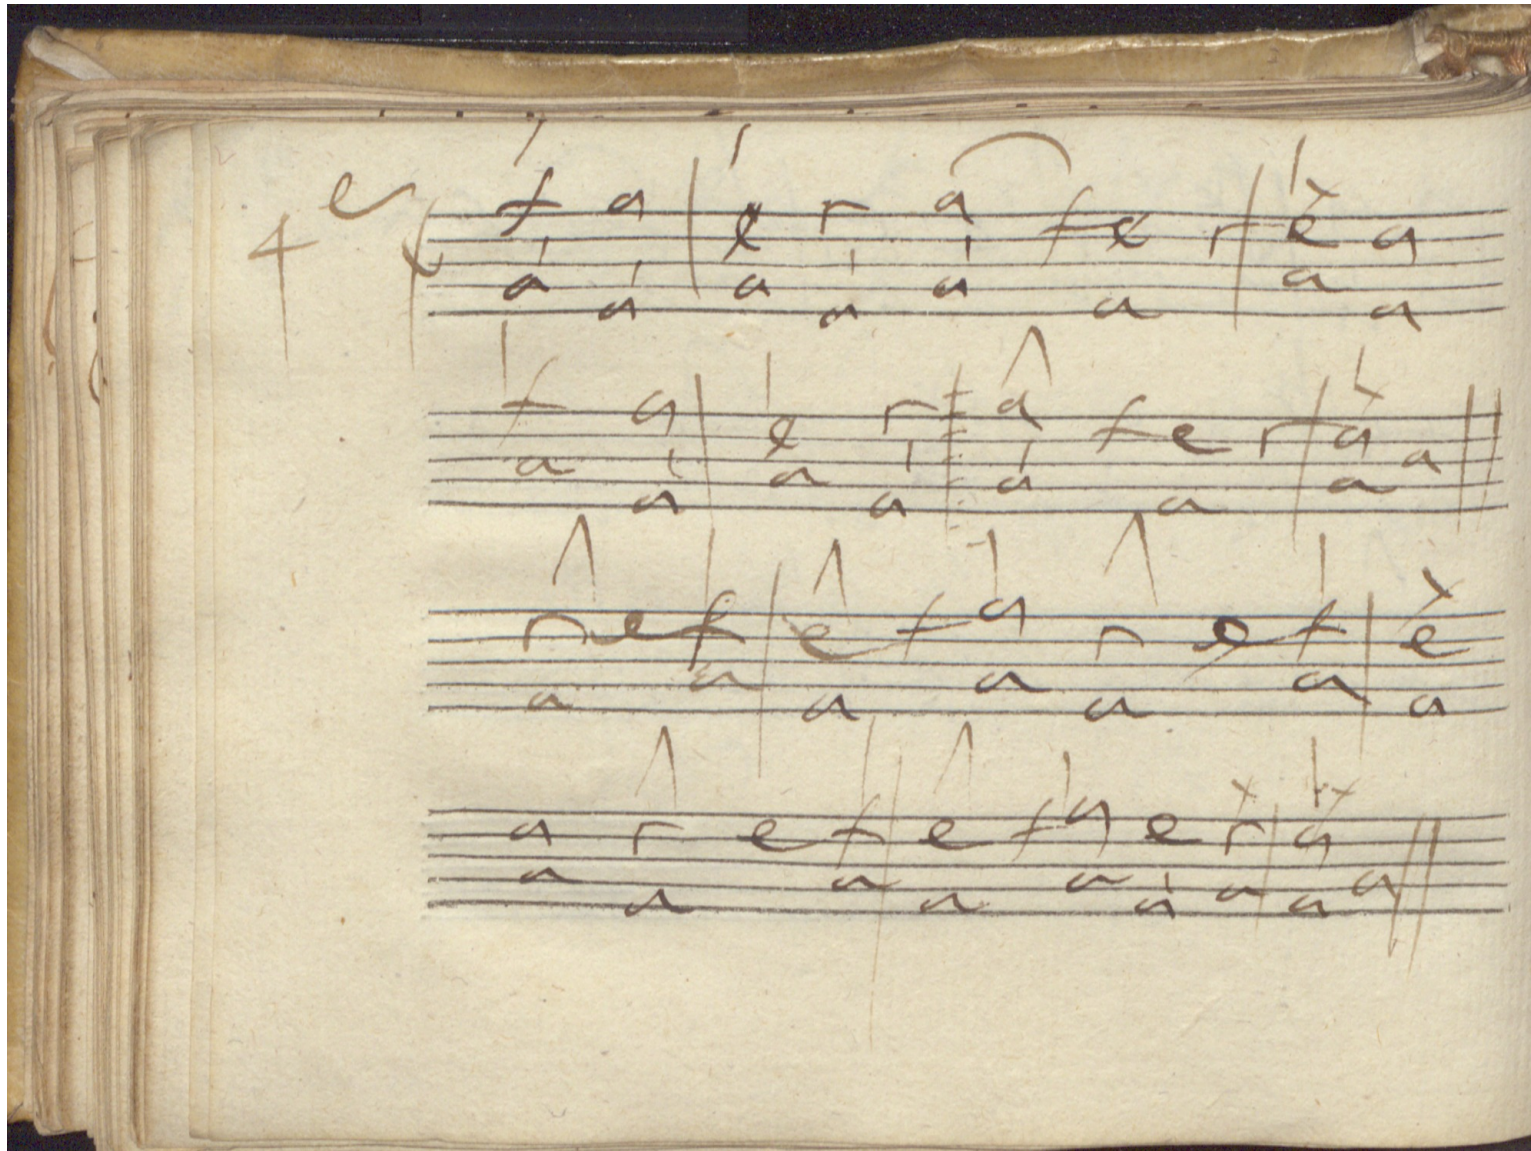 4 e
f a e r a f e r e a
a a a a a a a a
f a e r a f e r a a
a a a a a a a
r e f e f a r e f e
a a a a a a a
a r e f e f a e r a
a a a a a a a a a